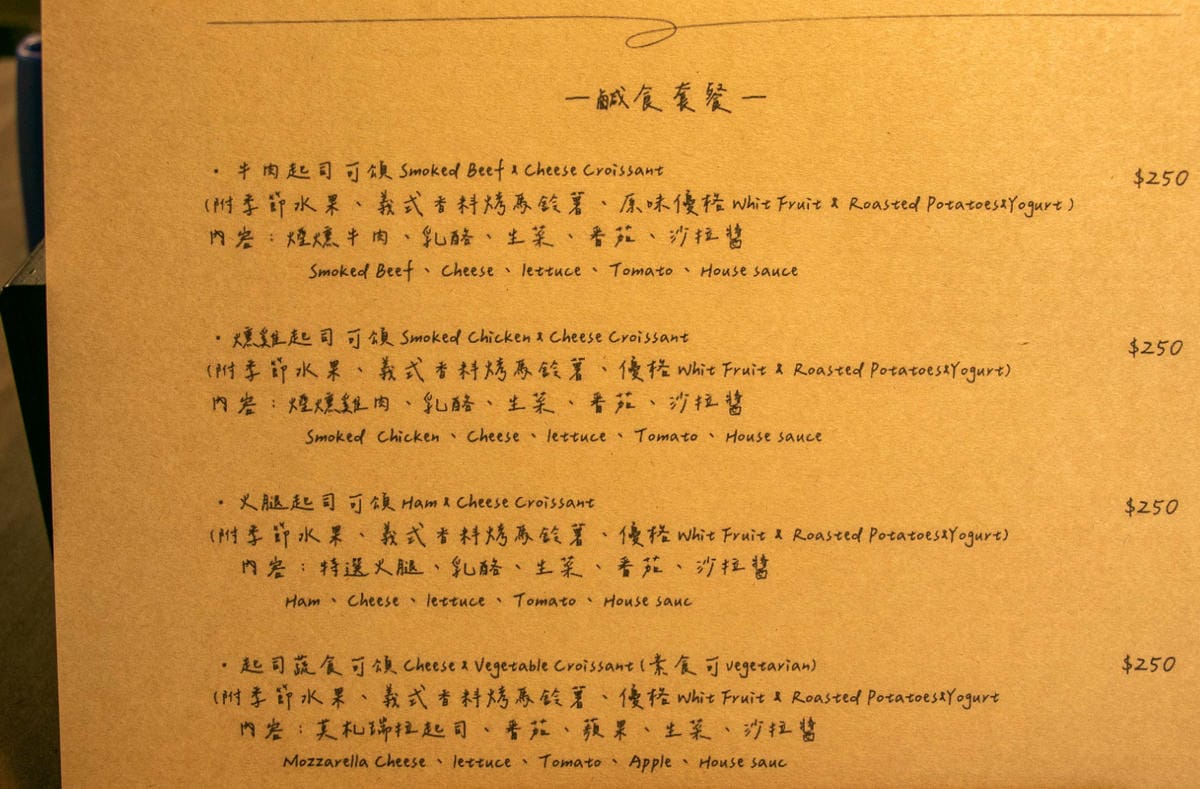 —鹹食套餐—
・牛肉起司可頌 Smoked Beef & Cheese Croissant $250
(附季節水果、義式香料烤馬鈴薯、原味優格 Whit Fruit & Roasted Potatoes&Yogurt)
內容：煙燻牛肉、乳酪、生菜、番茄、沙拉醬
Smoked Beef、Cheese、lettuce、Tomato、House sauce
・燻雞起司可頌 Smoked Chicken & Cheese Croissant $250
(附季節水果、義式香料烤馬鈴薯、優格 Whit Fruit & Roasted Potatoes&Yogurt)
內容：煙燻雞肉、乳酪、生菜、番茄、沙拉醬
Smoked Chicken、Cheese、lettuce、Tomato、House sauce
・火腿起司可頌 Ham & Cheese Croissant $250
(附季節水果、義式香料烤馬鈴薯、優格 Whit Fruit & Roasted Potatoes&Yogurt)
內容：特選火腿、乳酪、生菜、番茄、沙拉醬
Ham、Cheese、lettuce、Tomato、House sauc
・起司蔬食可頌 Cheese & Vegetable Croissant (素食可vegetarian) $250
(附季節水果、義式香料烤馬鈴薯、優格 Whit Fruit & Roasted Potatoes&Yogurt
內容：莫札瑞拉起司、番茄、蘋果、生菜、沙拉醬
Mozzarella Cheese、lettuce、Tomato、Apple、House sauc